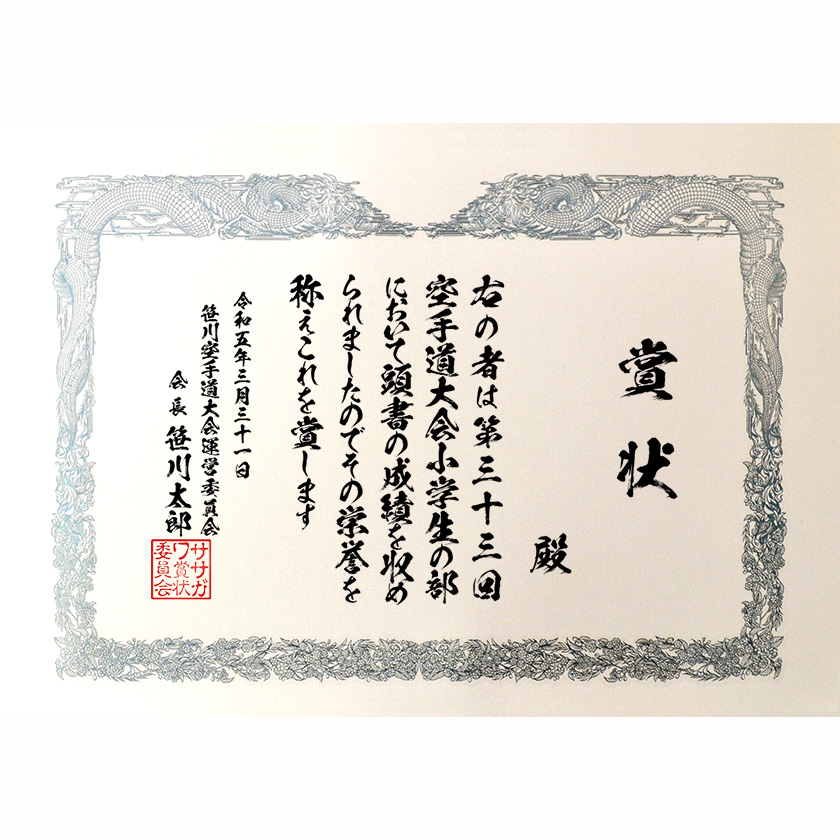 賞状
殿
右の者は第三十三回
空手道大会小学生の部
において頭書の成績を収め
られましたのでその栄誉を
称えこれを賞します
令和五年三月三十一日
笹川空手道大会運営委員会
会長 笹川太郎
ササガ
ワ賞状
委員会